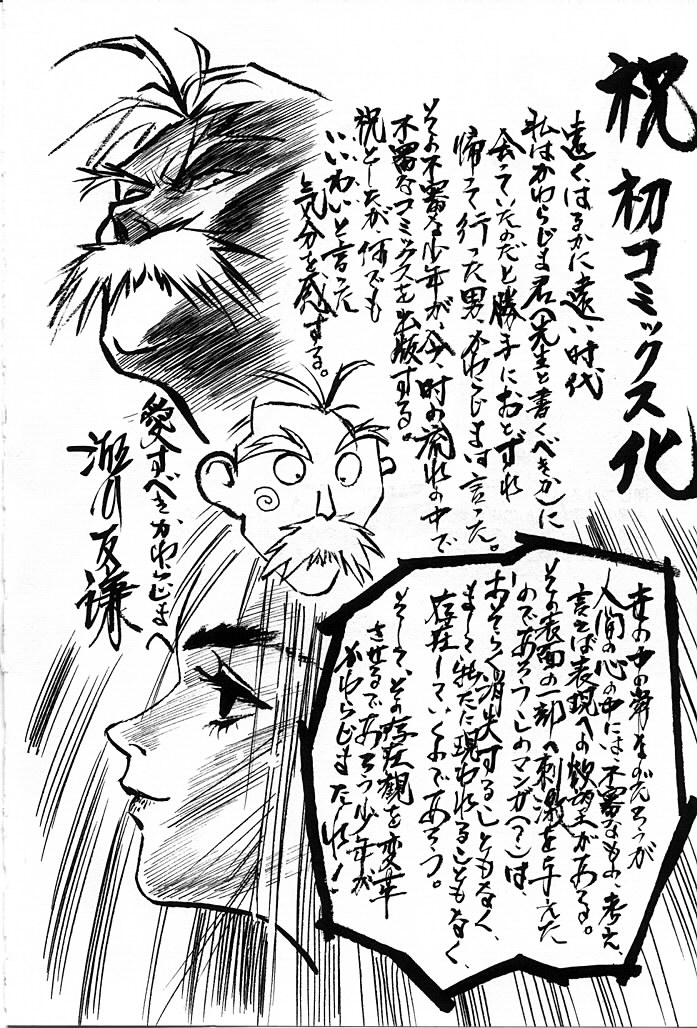 祝 初コミックス化
遠く、はるかに遠い時代
私はかわらじま君(先生と書くべきか)に
会っていたのだと勝手におとずれ
帰って行った男、かわらじまは言った。
その不審な少年が、今、時の流れの中で
不審なコミックスを出版する。
祝としたが何でも
いいわいと言った
気分を感する。
愛すべきかわらじまへ
人間の心の中には、不審なもの、考え、
言わば表現への欲望がある。
その表面の一部へ刺激を与えた
のであろうこのマンガ(?)は、
おそらく消失することもなく、
まして新たに現われることもなく、
存在していくのであろう。
そして、その存在観を変革
させるであろう少年が
かわらじまだ!